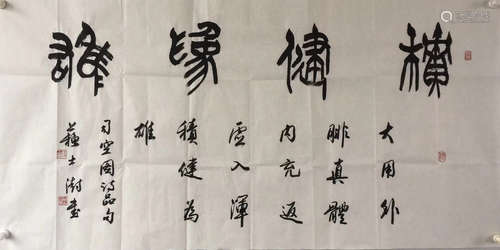 積健為雄
大用外
腓真體
内充返
虛入渾
積健為
雄
司空圖詩品句
蘇士澍書